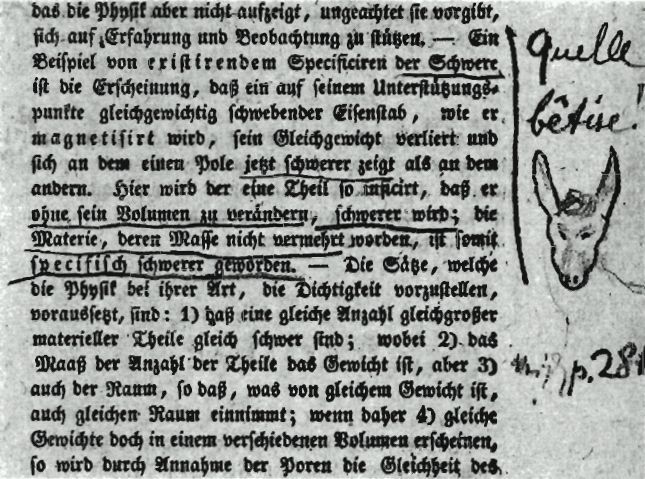 das die Physik aber nicht aufzeigt, ungeachtet sie vorgibt,
sich auf Erfahrung und Beobachtung zu stützen. — Ein
Beispiel von existirendem Specificiren der Schwere
ist die Erscheinung, daß ein auf seinem Unterstützungs-
punkte gleichgewichtig schwebender Eisenstab, wie er
magnetisirt wird, sein Gleichgewicht verliert und
sich an dem einen Pole jetzt schwerer zeigt als an dem
andern. Hier wird der eine Theil so inficirt, daß er
ohne sein Volumen zu verändern, schwerer wird; die
Materie, deren Masse nicht vermehrt worden, ist somit
specifisch schwerer geworden. — Die Sätze, welche
die Physik bei ihrer Art, die Dichtigkeit vorzustellen,
voraussetzt, sind: 1) daß eine gleiche Anzahl gleichgroßer
materieller Theile gleich schwer sind; wobei 2) das
Maaß der Anzahl der Theile das Gewicht ist, aber 3)
auch der Raum, so daß, was von gleichem Gewicht ist,
auch gleichen Raum einnimmt; wenn daher 4) gleiche
Gewichte doch in einem verschiedenen Volumen erscheinen,
so wird durch Annahme der Poren die Gleichheit des
Quelle
bêtise!
p. 281